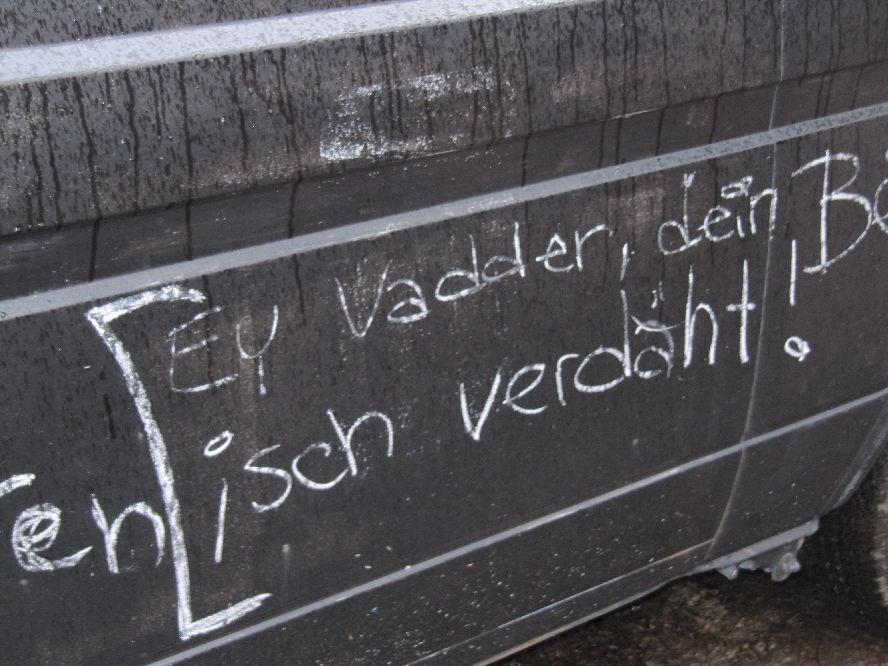 EY Vadder, dein
isch verdäht!
en